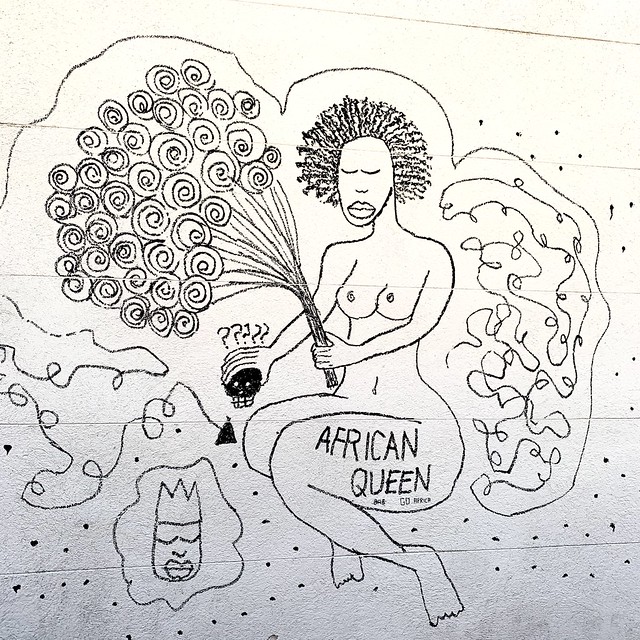 ?????
AFRICAN
QUEEN
GO AFRICA